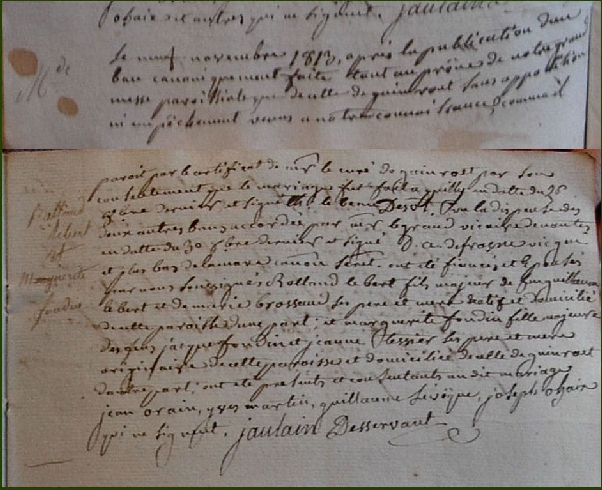 ohaix et autres qui ne signent. jaulain
M. de
Le neuf novembre 1813, après la publication d'un
ban canoniquement faite tant au prône de notre grand
messe paroissiale que de celle de guinrost sans opposition
ni empêchement venus a notre connoissance, comme il
paroit par le certificat de mr le curé de guinrost par son
consentement que le mariage fut fait a quilly en datte du 25
8bre dernier et signé le Desp. Vu la dispense des
deux autres bans accordée par mr le grand vicaire de nantes
en datte du 30 8bre dernier et signé D. a. defrasne vic. gne
et plus bas delamare canon secret. ont été fiancés et épousés
par nous soussignés Rolland lebert fils majeur de feu guillaume
lebert et de marie brossaud ses pere et mere natif et domicilié
de cette paroisse d'une part; et marguerite fondin fille majeure
des feus jacque fondin et jeanne Tessier ses pere et mere
originaire de cette paroisse et domiciliée de celle de guinrost
d'autre part; ont été présents et consentants au dit mariage
jean orain, yves martin, guillaume Levêque, joseph ohaix
qui ne signent. jaulain Desservant
Rolland
lebert
et
Marguerite
fondin